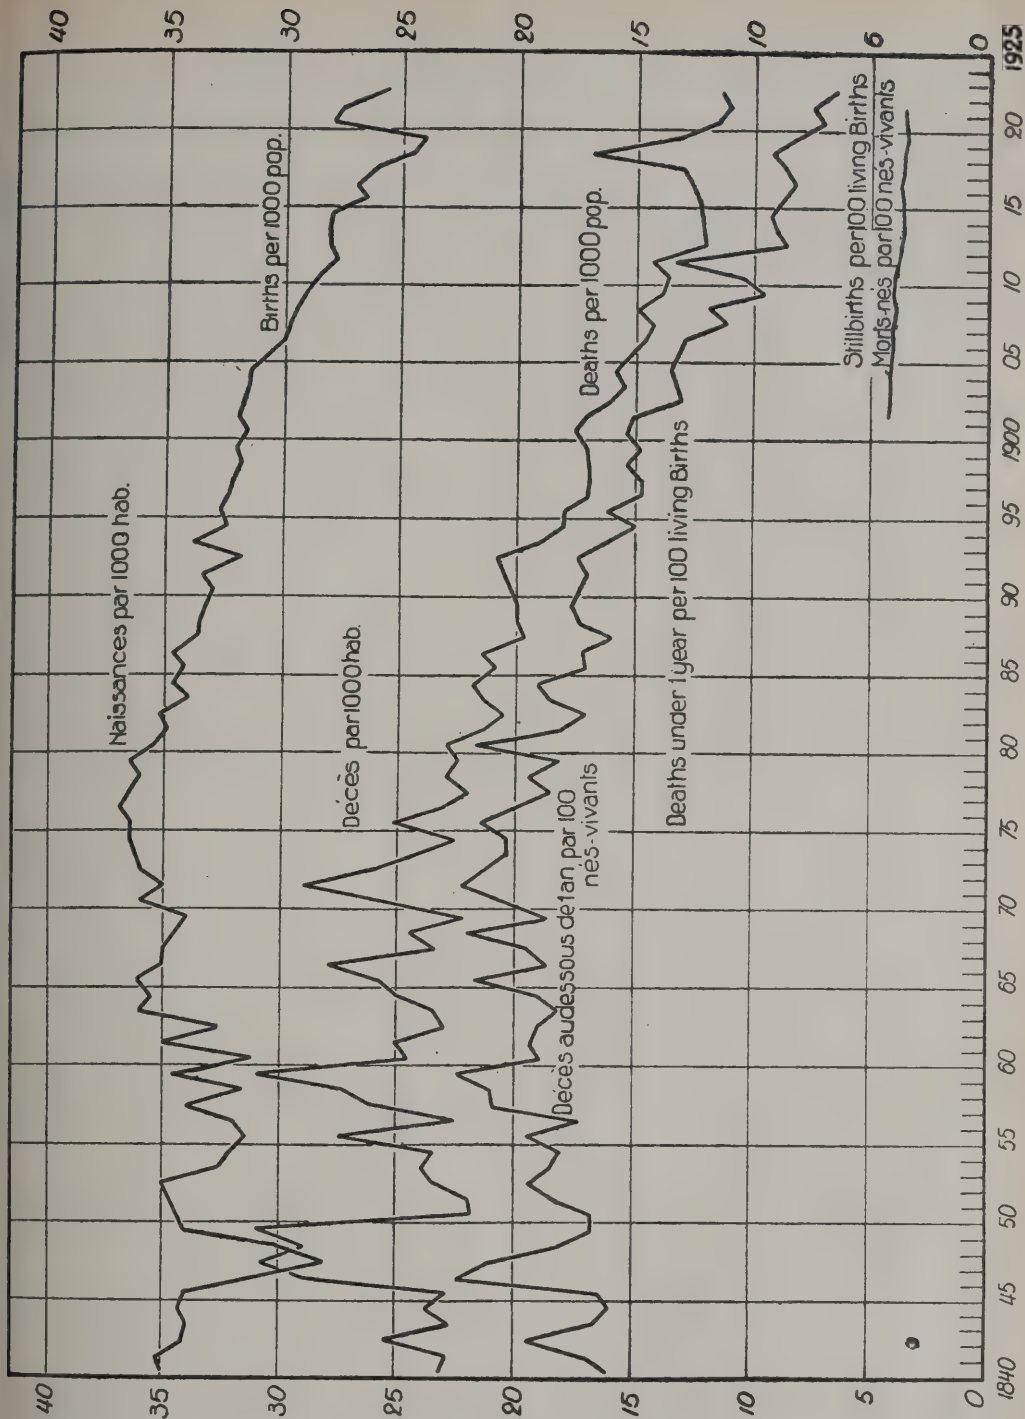 40 35 30 25 20 15 10 5 0
Naissances par 1000 hab.
Births per 1000 pop.
Décès par 1000 hab.
Deaths per 1000 pop.
Décès audessous de 1 an par 100
nés-vivants
Deaths under 1 year per 100 living Births
Stillbirths per 100 living Births
Morts-nés par 100 nés-vivants
40 35 30 25 20 15 10 5 0
1840 45 50 55 60 65 70 75 80 85 90 95 1900 05 10 15 20 1925